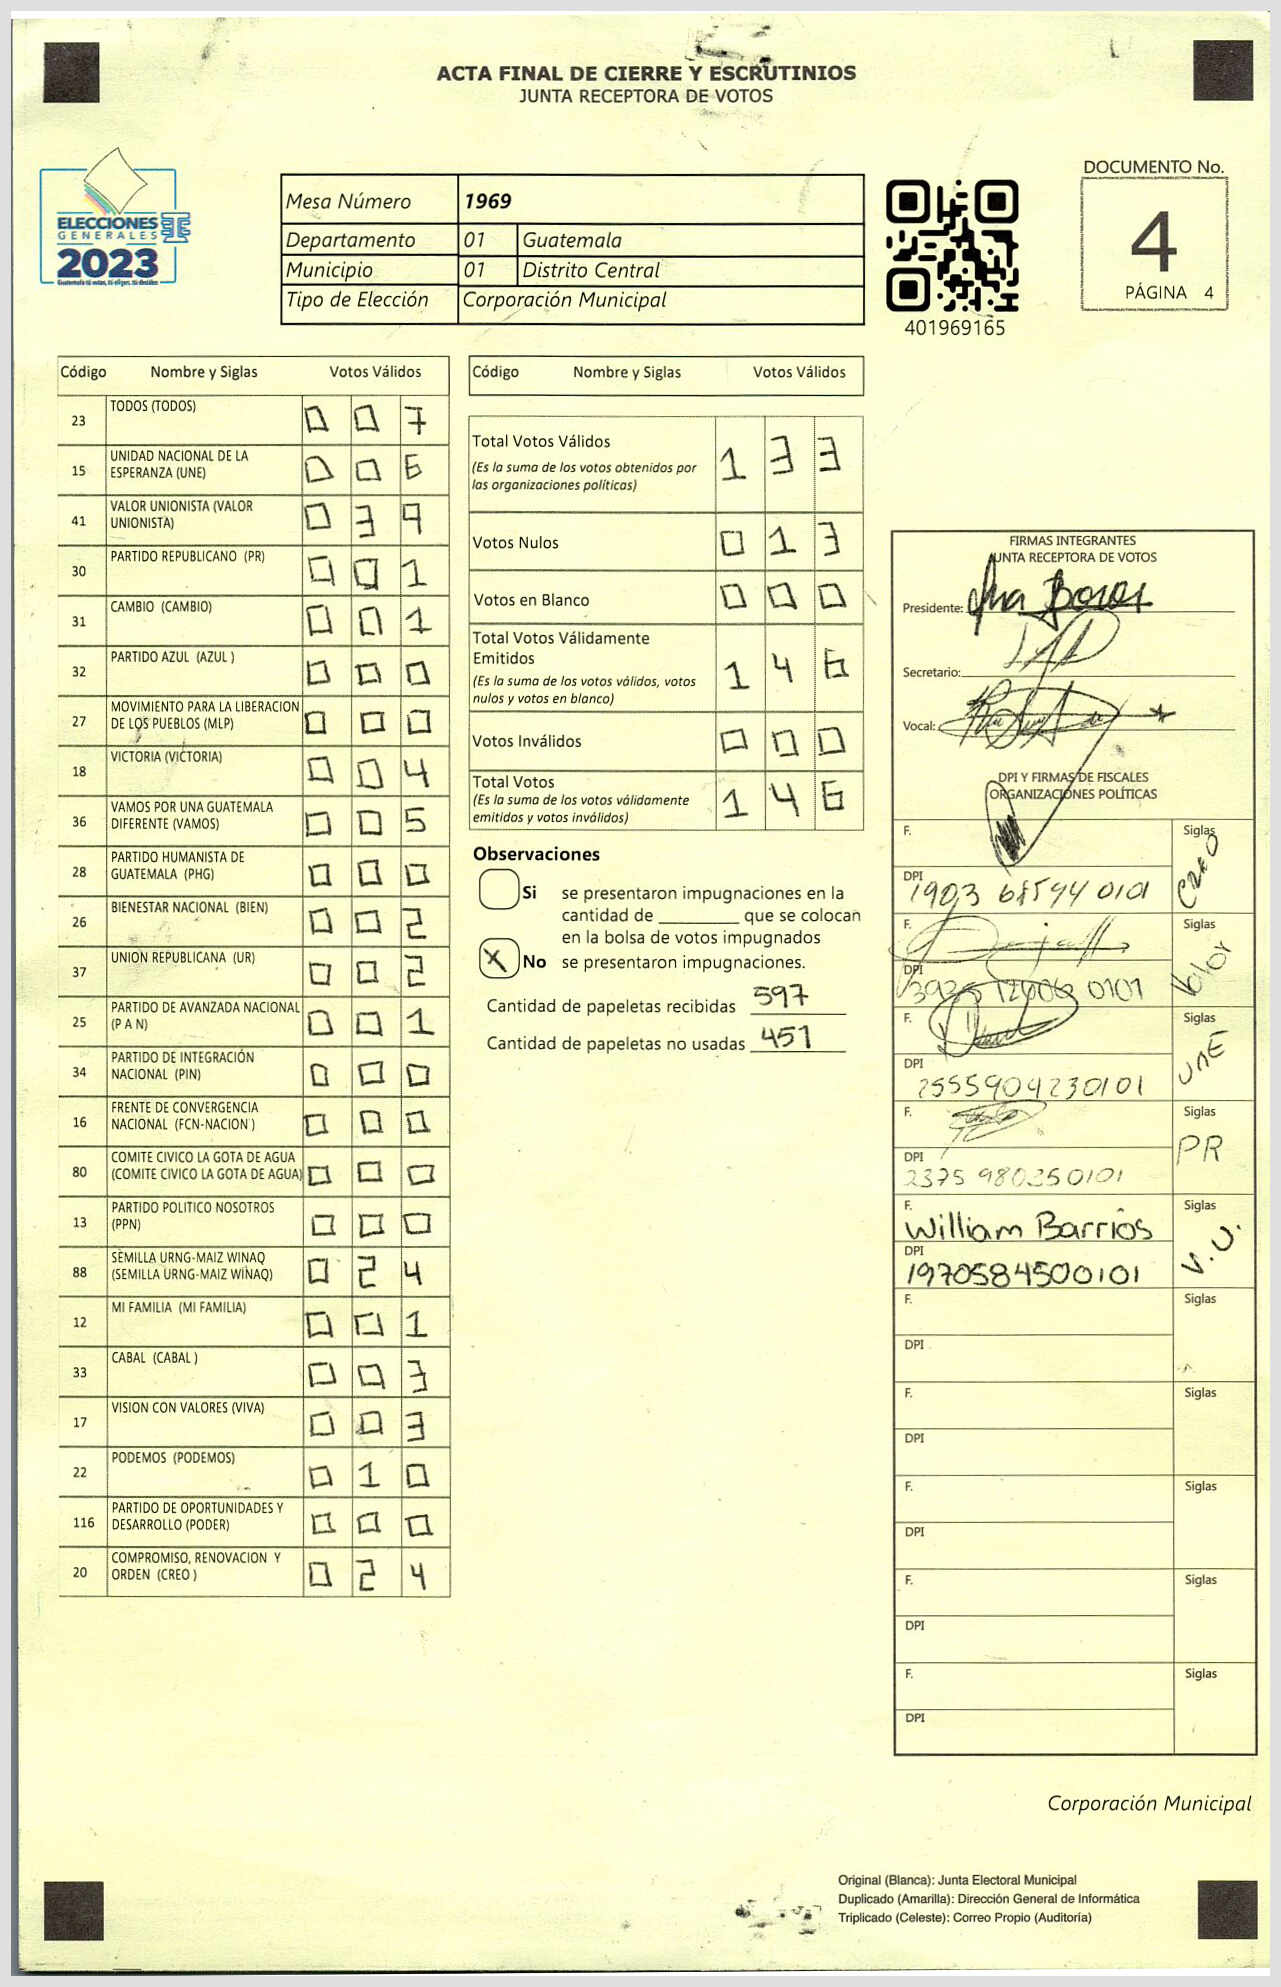 ACTA FINAL DE CIERRE Y ESCRUTINIOS
JUNTA RECEPTORA DE VOTOS
ELECCIONES
GENERALES
2023
Guatemala tú votas, tú eliges, tú decides
Mesa Número 1969
Departamento 01 Guatemala
Municipio 01 Distrito Central
Tipo de Elección Corporación Municipal
401969165
DOCUMENTO No.
4
PÁGINA 4
Código Nombre y Siglas Votos Válidos
23 TODOS (TODOS) 0 0 7
15 UNIDAD NACIONAL DE LA
ESPERANZA (UNE) 0 0 6
41 VALOR UNIONISTA (VALOR
UNIONISTA) 0 3 9
30 PARTIDO REPUBLICANO (PR) 0 0 1
31 CAMBIO (CAMBIO) 0 0 1
32 PARTIDO AZUL (AZUL ) 0 0 0
27 MOVIMIENTO PARA LA LIBERACION
DE LOS PUEBLOS (MLP) 0 0 0
18 VICTORIA (VICTORIA) 0 0 4
36 VAMOS POR UNA GUATEMALA
DIFERENTE (VAMOS) 0 0 5
28 PARTIDO HUMANISTA DE
GUATEMALA (PHG) 0 0 0
26 BIENESTAR NACIONAL (BIEN) 0 0 2
37 UNION REPUBLICANA (UR) 0 0 2
25 PARTIDO DE AVANZADA NACIONAL
(P A N) 0 0 1
34 PARTIDO DE INTEGRACIÓN
NACIONAL (PIN) 0 0 0
16 FRENTE DE CONVERGENCIA
NACIONAL (FCN-NACION ) 0 0 0
80 COMITE CIVICO LA GOTA DE AGUA
(COMITE CIVICO LA GOTA DE AGUA) 0 0 0
13 PARTIDO POLITICO NOSOTROS
(PPN) 0 0 0
88 SEMILLA URNG-MAIZ WINAQ
(SEMILLA URNG-MAIZ WINAQ) 0 2 4
12 MI FAMILIA (MI FAMILIA) 0 0 1
33 CABAL (CABAL ) 0 0 3
17 VISION CON VALORES (VIVA) 0 0 3
22 PODEMOS (PODEMOS) 0 1 0
116 PARTIDO DE OPORTUNIDADES Y
DESARROLLO (PODER) 0 0 0
20 COMPROMISO, RENOVACION Y
ORDEN (CREO ) 0 2 4
Código Nombre y Siglas Votos Válidos
Total Votos Válidos 1 3 3
(Es la suma de los votos obtenidos por
las organizaciones políticas)
Votos Nulos 0 1 3
Votos en Blanco 0 0 0
Total Votos Válidamente
Emitidos 1 4 6
(Es la suma de los votos válidos, votos
nulos y votos en blanco)
Votos Inválidos 0 0 0
Total Votos 1 4 6
(Es la suma de los votos válidamente
emitidos y votos inválidos)
Observaciones
Si se presentaron impugnaciones en la
cantidad de que se colocan
en la bolsa de votos impugnados
X No se presentaron impugnaciones.
Cantidad de papeletas recibidas 597
Cantidad de papeletas no usadas 451
FIRMAS INTEGRANTES
JUNTA RECEPTORA DE VOTOS
Presidente:
Secretario:
Vocal:
DPI Y FIRMAS DE FISCALES
ORGANIZACIONES POLÍTICAS
F. Siglas
DPI CREO
F. Siglas
DPI Valor
F. Siglas
DPI UNE
2555904230101
F. Siglas
DPI PR
2375 980250101
F. William Barrios Siglas
DPI V.U.
1970584500101
F. Siglas
DPI
F. Siglas
DPI
F. Siglas
DPI
F. Siglas
DPI
F. Siglas
DPI
Corporación Municipal
Original (Blanca): Junta Electoral Municipal
Duplicado (Amarilla): Dirección General de Informática
Triplicado (Celeste): Correo Propio (Auditoría)